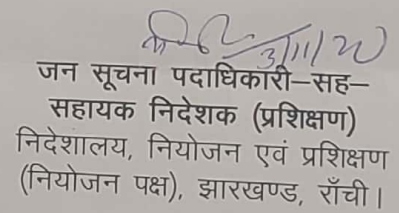 जन सूचना पदाधिकारी–सह–
सहायक निदेशक (प्रशिक्षण)
निदेशालय, नियोजन एवं प्रशिक्षण
(नियोजन पक्ष), झारखण्ड, राँची।